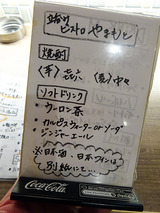 ビストロやまもと
焼酎
(芋) 㐂六 (麦)中々
ソフトドリンク
・ウーロン茶
・カルピスウォーターorソーダ
・ジンジャーエール
※日本酒、日本ワインは
別紙にて…
Coca-Cola